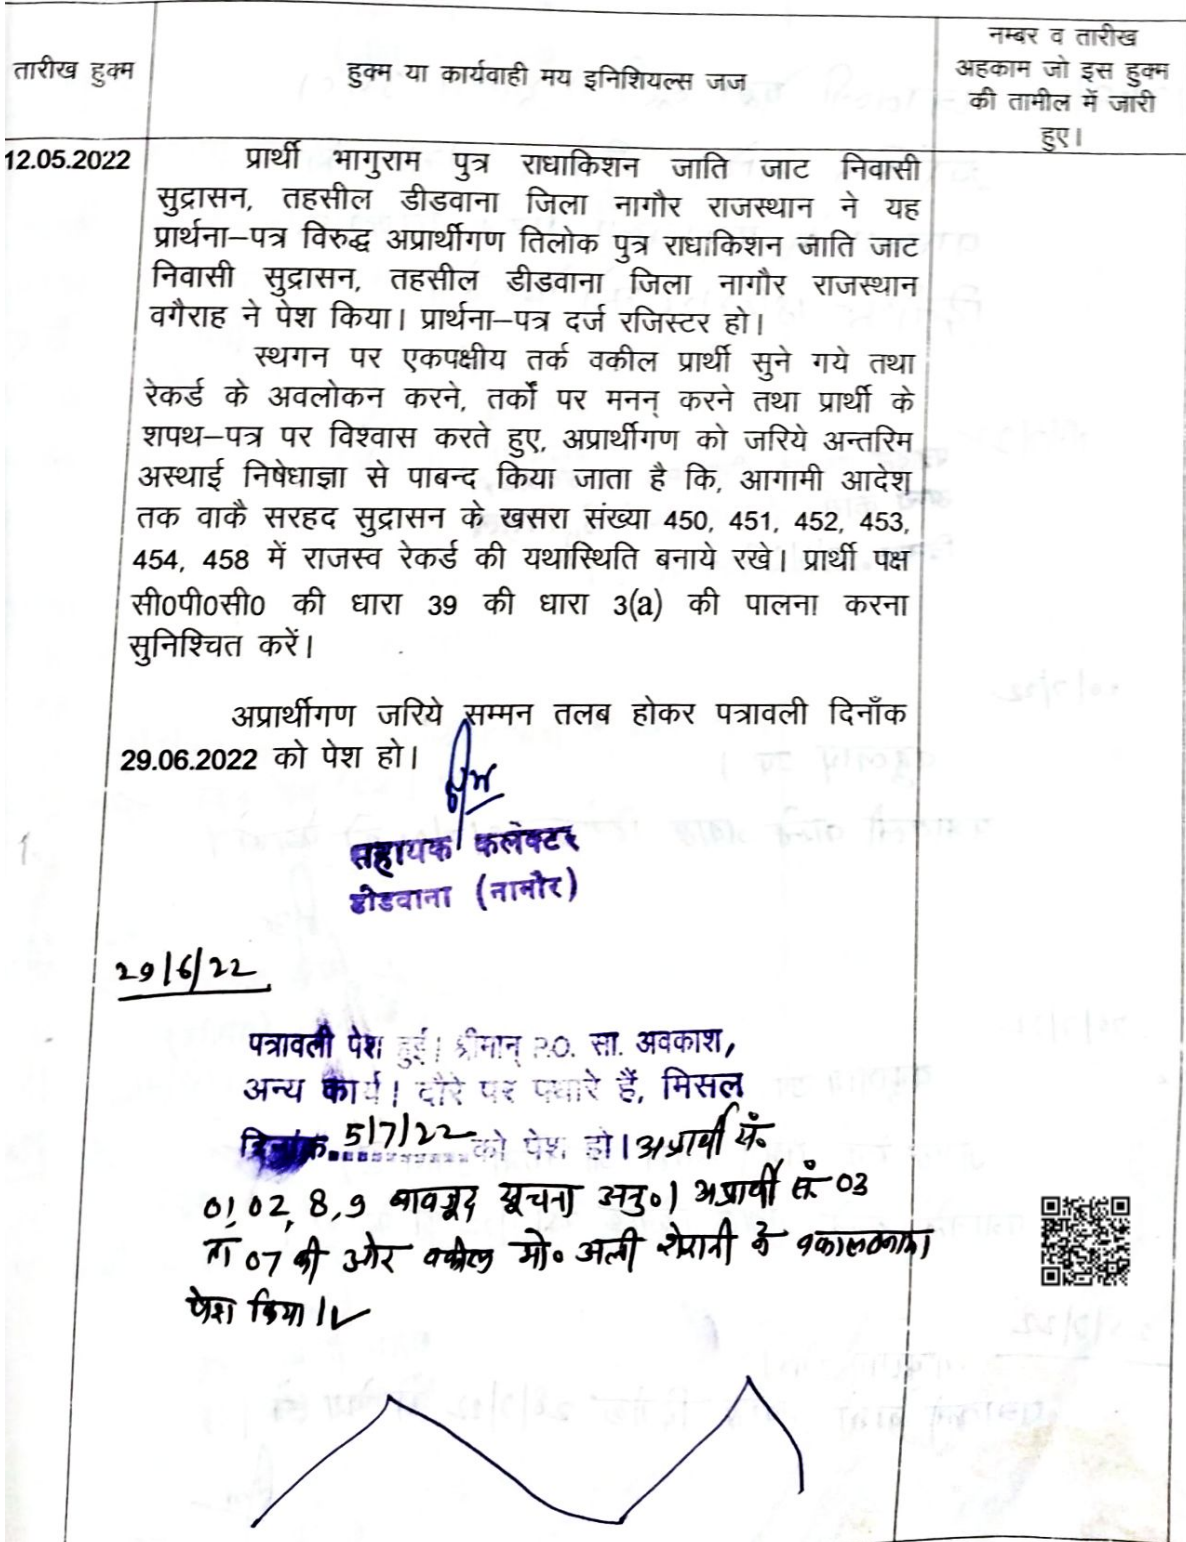 तारीख हुक्म
हुक्म या कार्यवाही मय इनिशियल्स जज
नम्बर व तारीख
अहकाम जो इस हुक्म
की तामील में जारी
हुए।
12.05.2022
प्रार्थी भागुराम पुत्र राधाकिशन जाति जाट निवासी
सुद्रासन, तहसील डीडवाना जिला नागौर राजस्थान ने यह
प्रार्थना–पत्र विरुद्ध अप्रार्थीगण तिलोक पुत्र राधाकिशन जाति जाट
निवासी सुद्रासन, तहसील डीडवाना जिला नागौर राजस्थान
वगैराह ने पेश किया। प्रार्थना–पत्र दर्ज रजिस्टर हो।
स्थगन पर एकपक्षीय तर्क वकील प्रार्थी सुने गये तथा
रेकर्ड के अवलोकन करने, तर्कों पर मनन् करने तथा प्रार्थी के
शपथ–पत्र पर विश्वास करते हुए, अप्रार्थीगण को जरिये अन्तरिम
अस्थाई निषेधाज्ञा से पाबन्द किया जाता है कि, आगामी आदेश
तक वाकै सरहद सुद्रासन के खसरा संख्या 450, 451, 452, 453,
454, 458 में राजस्व रेकर्ड की यथास्थिति बनाये रखे। प्रार्थी पक्ष
सी0पी0सी0 की धारा 39 की धारा 3(a) की पालना करना
सुनिश्चित करें।
अप्रार्थीगण जरिये सम्मन तलब होकर पत्रावली दिनाँक
29.06.2022 को पेश हो।
सहायक कलेक्टर
डीडवाना (नागौर)
29/6/22
पत्रावली पेश हुई। श्रीमान् P.O. सा. अवकाश,
अन्य कार्य। दौरे पर पधारे हैं, मिसल
दिनांक 5/7/22 को पेश हो। अप्रार्थी सं.
01, 02, 8, 9 बावजूद सूचना अनु०। अप्रार्थी सं. 03
ता 07 की ओर वकील मो० अली शेरानी ने वकालतनामा
पेश किया।